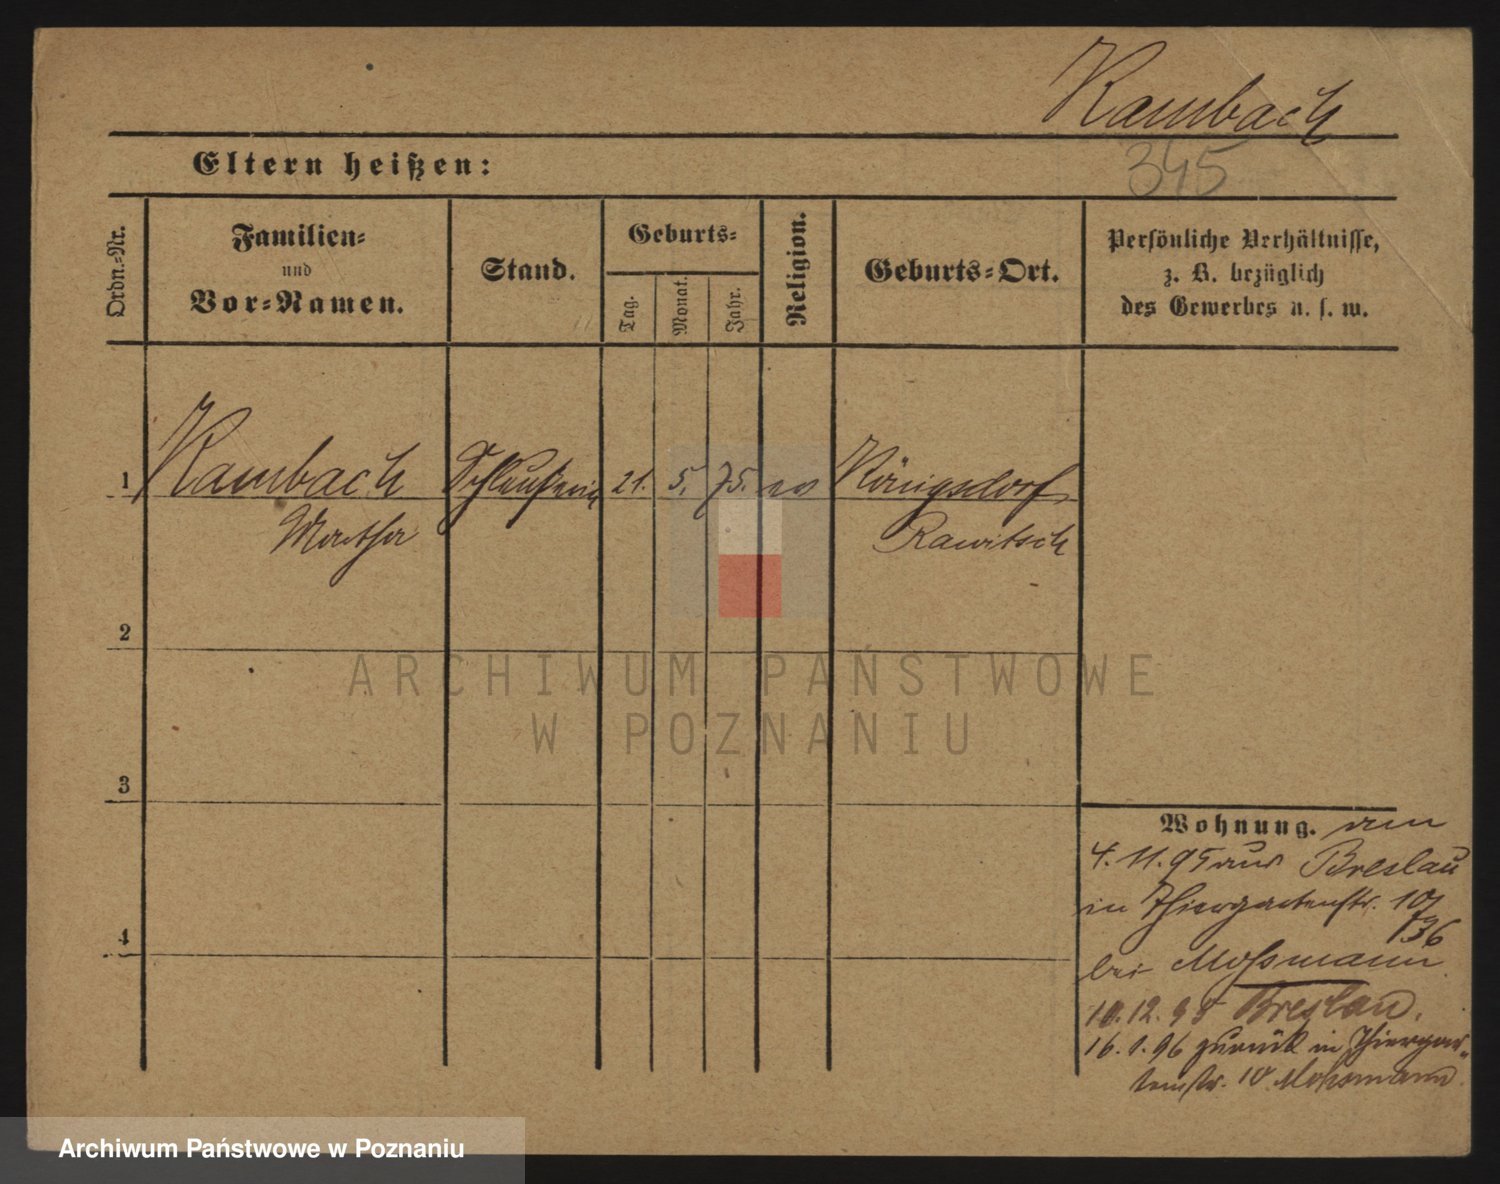 Rambach
345
Eltern heißen:
Ordn.-Nr.
Familien-
und
Vor-Namen.
Stand.
Geburts-
Tag.
Monat.
Jahr.
Religion.
Geburts-Ort.
Persönliche Verhältnisse,
z. B. bezüglich
des Gewerbes u. s. w.
1
Rambach
21.
5.
75.
ev
Königsdorf
Martha
Rawitsch
2
ARCHIWUM PAŃSTWOWE
W POZNANIU
3
4
Wohnung. am
4. 11. 95 aus Breslau
in Thiergartenstr. 10
136
bei Mossmann
10. 12. 95 Breslau.
16. 1. 96 zurück in Thiergar-
tenstr. 10 Mossmann.
Archiwum Państwowe w Poznaniu